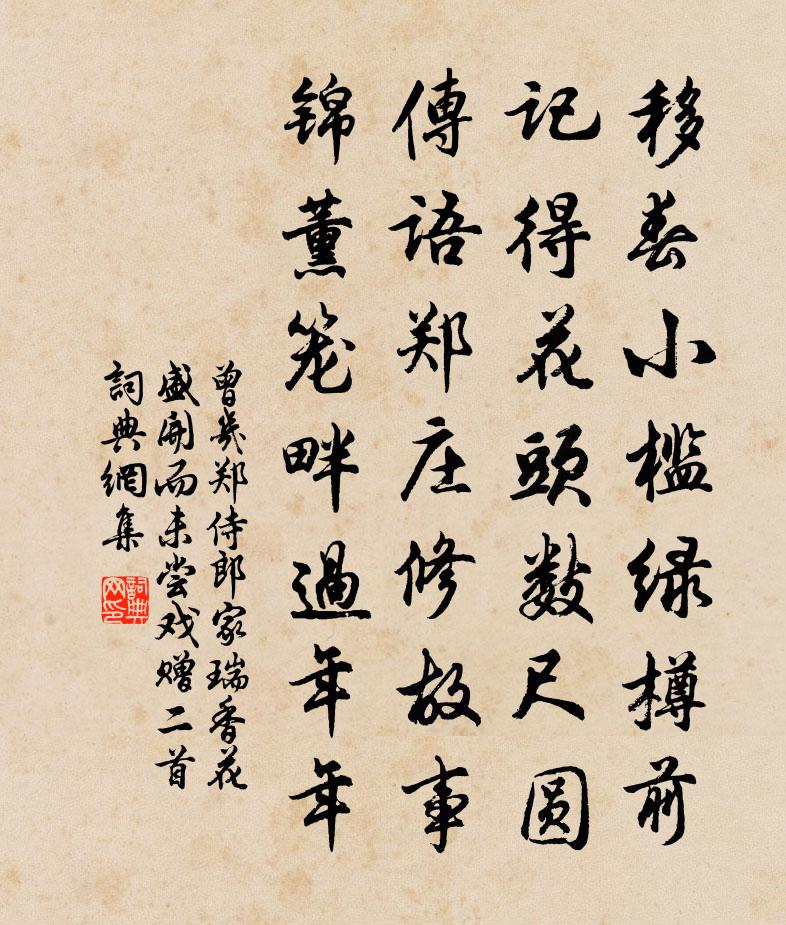 移春小槛绿樽前
记得花頭数尺圆
傳语郑庄修故事
锦薰笼畔過年年
曾幾郑侍郎家瑞香花
盛開而未尝戏赠二首
詞典網集
詞典
网印